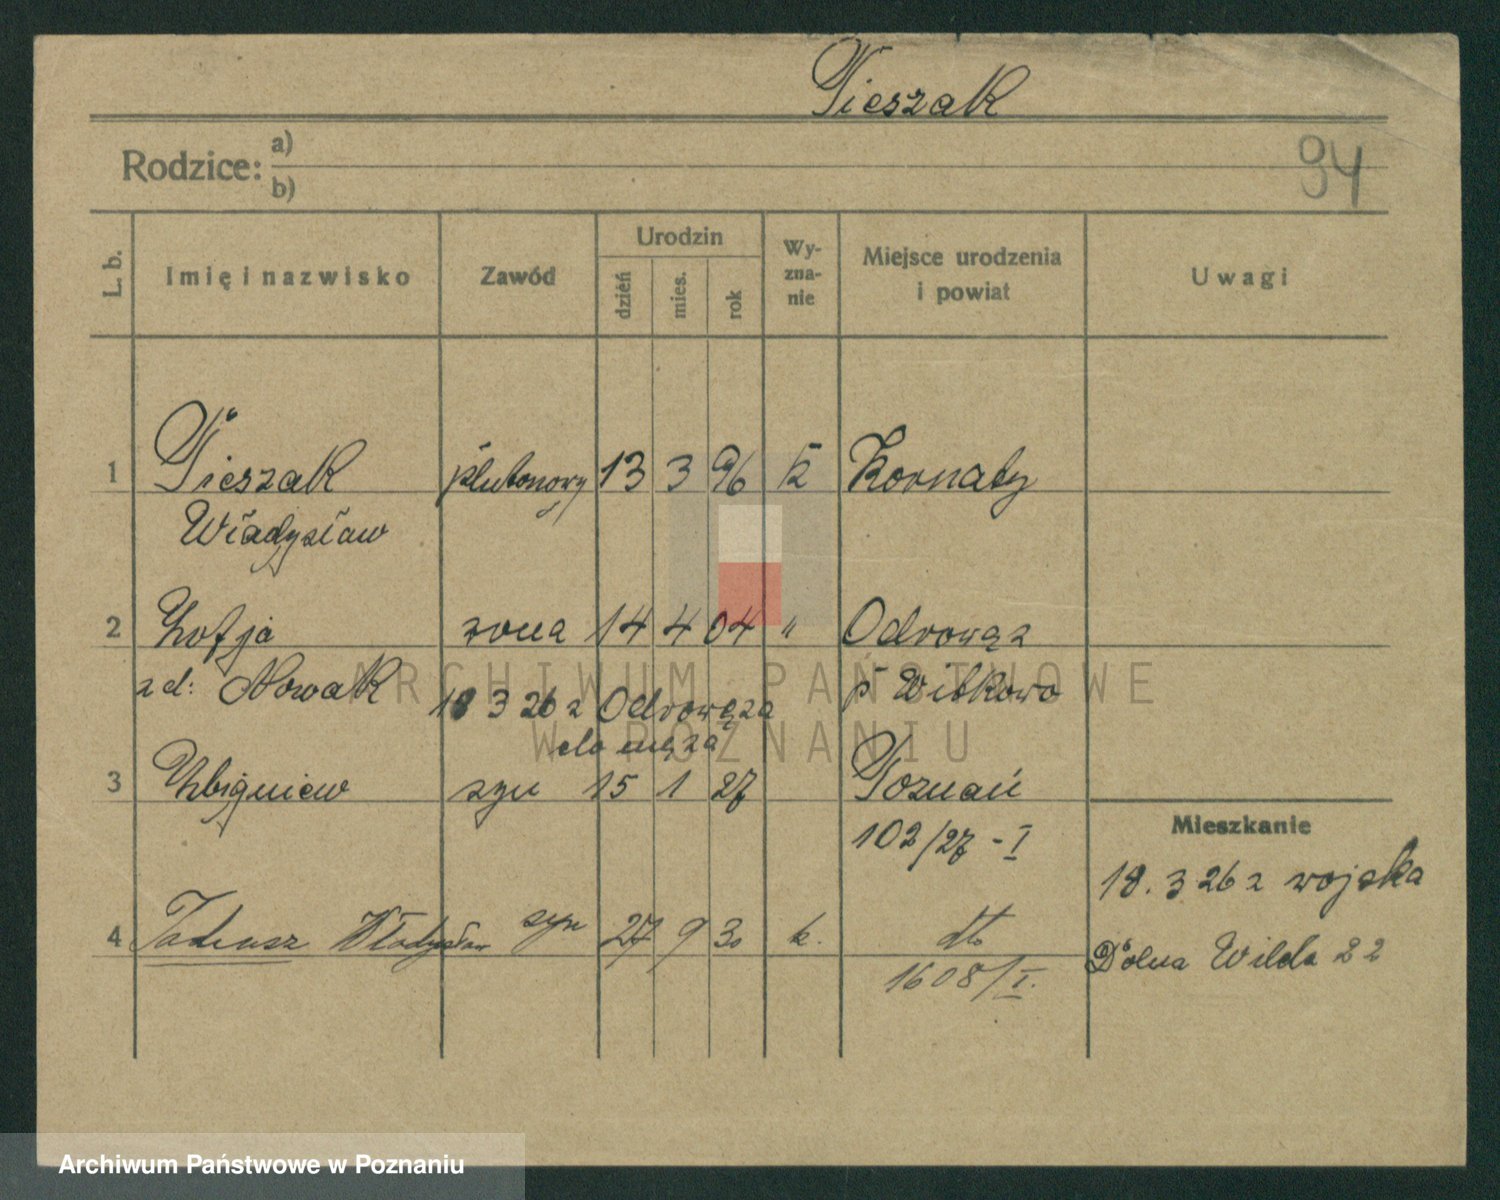 Pieszak
Rodzice: a)
b)
94
L. b.
Imię i nazwisko
Zawód
Urodzin
dzień
mies.
rok
Wy-
zna-
nie
Miejsce urodzenia
i powiat
Uwagi
1 Pieszak plutonowy 13 3 96 k Kornaty
Władysław
2 Zofja żona 14 4 04 " Odrowąż
z d: Nowak p Witkowo
18 3 26 z Odrowąża
do męża
3 Zbigniew syn 15 1 27 Poznań
102/27 - I
Mieszkanie
18. 3 26 z wojska
4 Tadeusz Władysław syn 27 9 30 k. dto
Dolna Wilda 22
1608/I.
ARCHIWUM PAŃSTWOWE
W POZNANIU
Archiwum Państwowe w Poznaniu